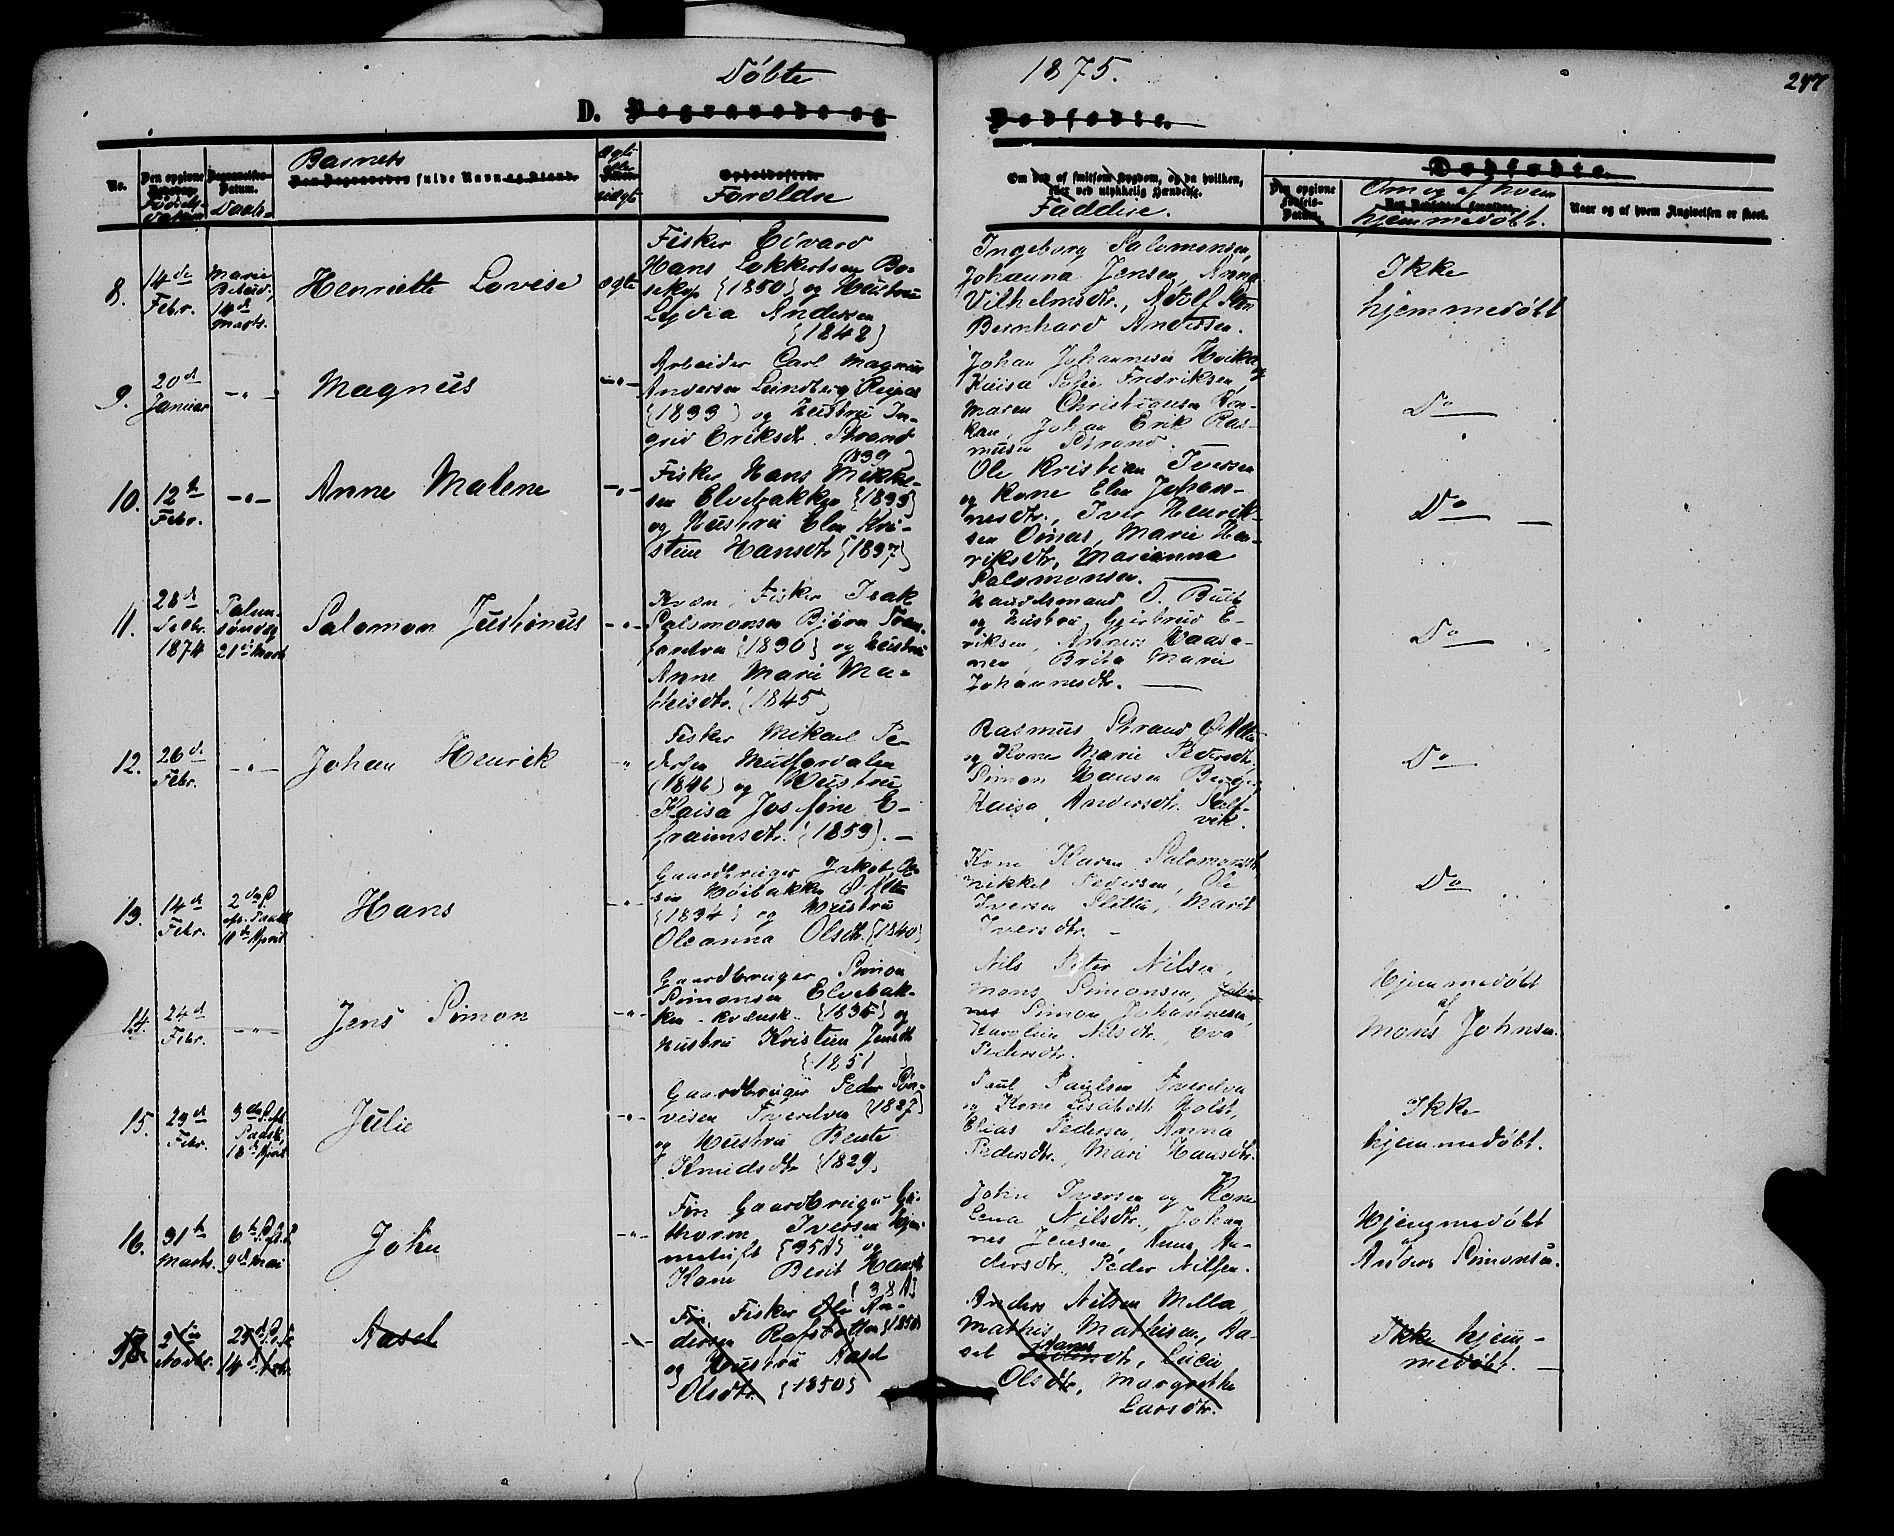 Döbte 1875.
247
D. Begravede og Dødfødte.
No.
Den opgivne Fødsels-Datum
Daabs-
Barnets fulde Navn og Stand.
Ægte eller uægte
Forældre
Om død af smitsom Sygdom, og da hvilken, eller ved ulykkelig Hændelse.
Faddere.
Den opgivne Fødsels-Datum.
Dødfødte.
Om og af hvem hjemmedöbt.
Naar og af hvem Angivelsen er skeet.
8.
14de Febr.
Marie Bebud. 14de Marts.
Henriette Lovise
ægte
Fisker Edvard
Hans Lokkertsen Bo-
sekop {1850} og Hustru
Lydia Andersen
{1848}
Ingeborg Salomonsen,
Johanna Jensen, Anne
Vilhelmsdtr., Adolf
Bernhard Andersen.
Ikke
hjemmedöbt
9.
20de Januar
-"-
Magnus
-"-
Arbeider Carl Magnus
Andersen Lindberg Reipas
{1833} og Hustru In-
grid Eriksdtr. Strand
1839
Johan Johannesen
Kaisa Sofie Fredriksen,
Maren Christiansen
Johan Erik Ras-
musen Strand.
Do
10.
12te Febr.
-"-
Anne Malene
-"-
Fisker Hans Mikkel-
sen Elvebakken {1835}
og Hustru Elen Kri-
stine Hansdtr {1837}
Ole Kristian Iversen
og Kone Elen Johan-
nesdtr., Iver Henrik-
sen Oinas, Marie Hen-
riksdtr, Marianna
Salomonsen.
Do
11.
28de Decbr. 1874
Palme-söndag 21de Marts
Salomon Justinus
-"-
Kvæn, Fisker Isak
Salomonsen Björn Tran-
farelven {1830} og Hustru
Anne Marie Ma-
theisdtr. {1845}
Handelsmand O. Bull
og Hustru, Gjertrud E-
riksen, Anders Vaara-
nen, Brita Marie
Johannesdtr.
Do
12.
26de Febr.
-"-
Johan Henrik
-"
Fisker Mikael Pe-
dersen Mattisdalen
(1846) og Hustru
Kaisa Josefine E-
fraimsdtr. {1859}.
Rasmus Strand Ö. Alten
og Kone Marie Pedersdtr,
Simon Hansen
Kaisa Andersdtr. Kalf-
vik.
Do
13.
14de Febr.
2den D. eft. Paaske 11te April
Hans
-"-
Gaardbruger Jakob Ol-
sen Höibakken Ö. Alten
{1834} og Hustru
Oleanna Olsdtr. {1840}
Kone Karen Salomonsdtr.
Mikkel Pedersen, Ole
Iversen Slettu, Marit
Iversdtr.
Do
14.
24de Febr.
-"-
Jens Simon
-"-
Gaardbruger Simon
Simonsen Elvebak-
ken - kvænsk - {1835} og
Hustru Kristine Jensdtr
{1851
Nils Peter Nilsen,
Mons Simonsen, Johan-
nes Simon Johannesen,
Karoline Nilsdtr, Eva
Pedersdtr.
Hjemmedöbt
af
Mons Johnsen.
15.
23de Febr.
3die S. eft. Paaske 18de April
Julie
-"-
Gaardbruger Peder Si-
versen Tverelven {1827}
og Hustru Berte
Knudsdtr {1829.
Paul Paulsen Tverelven
og Kone Elisabeth Holst,
Elias Pedersen, Anna
Pedersdtr., Mari Hansdtr.
Ikke
hjemmedöbt.
16.
31te Marts.
6te S. eft. P. 9de Mai
John
-"-
Fin Gaardbruger Gu-
thorm Iversen Hjem-
meluft {35 A} og
Kone Berit Hansdtr
{38 A}
John Iversen og Kone
Lena Nilsdtr., Johan-
nes Jensen, Anne An-
dersdtr., Peder Nilsen.
Hjemmedöbt
af
Anders Simonsen.
Aasel
-"-
Fin. Fisker Ole An-
dersen Rafsbotten {1850}
og Hustru Aasel
Olsdtr. {1850}
Anders Nilsen Mella,
Mathis Mathisen, Aa-
sel Hansdtr, Lucie
Olsdtr, Margrethe
Larsdtr.
Ikke hjem-
medöbt.